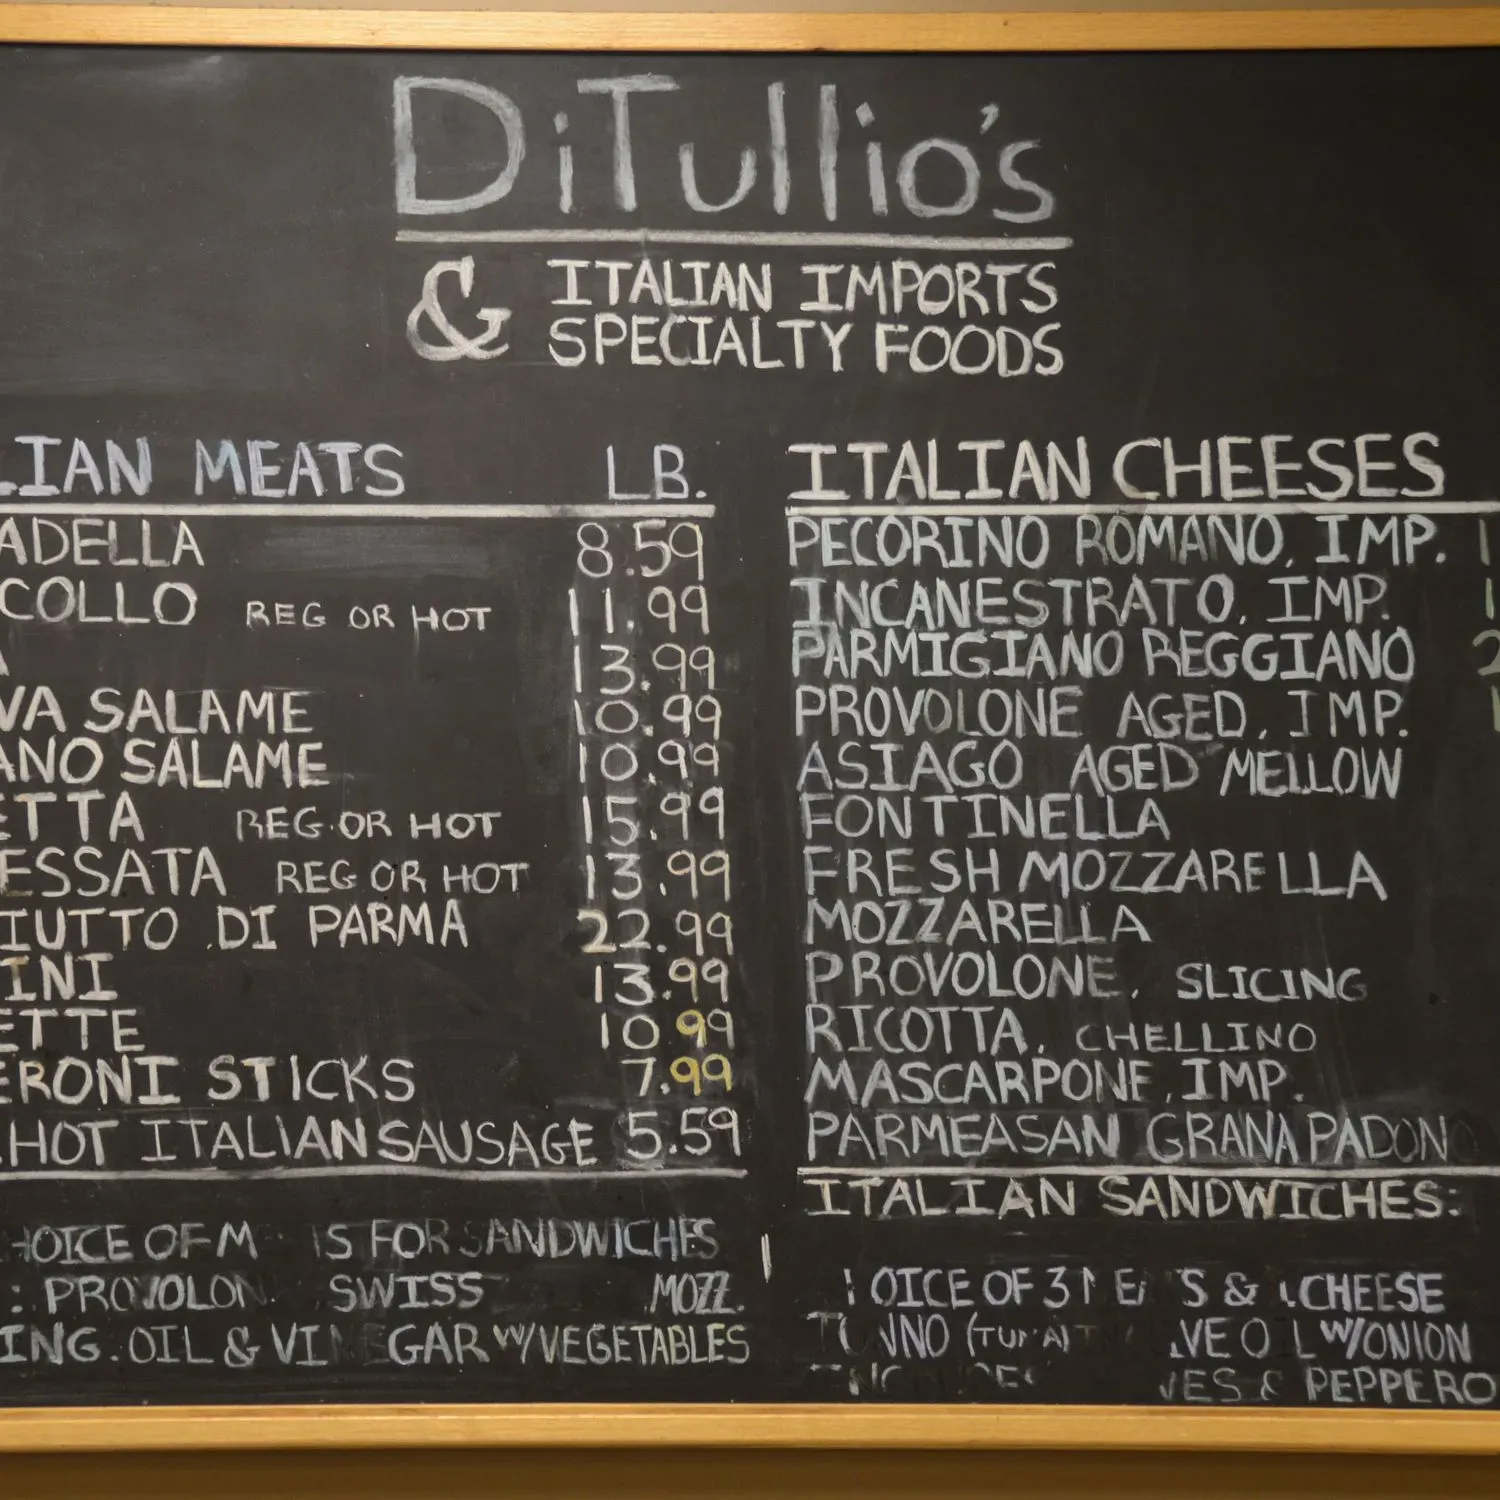 DiTullio's
& ITALIAN IMPORTS
SPECIALTY FOODS
LIAN MEATS LB.
ADELLA 8.59
COLLO REG OR HOT 11.99
A 13.99
VA SALAME 10.99
ANO SALAME 10.99
ETTA REG. OR HOT 15.99
ESSATA REG OR HOT 13.99
IUTTO DI PARMA 22.99
INI 13.99
ETTE 10 99
ERONI STICKS 7.99
HOT ITALIAN SAUSAGE 5.59
HOICE OF M S FOR SANDWICHES
: PROVOLON SWISS MOZZ.
ING: OIL & VINEGAR W/VEGETABLES
ITALIAN CHEESES
PECORINO ROMANO, IMP.
INCANESTRATO, IMP.
PARMIGIANO REGGIANO
PROVOLONE AGED, IMP.
ASIAGO AGED MELLOW
FONTINELLA
FRESH MOZZARELLA
MOZZARELLA
PROVOLONE, SLICING
RICOTTA, CHELLINO
MASCARPONE, IMP.
PARMEASAN GRANA PADONO
ITALIAN SANDWICHES:
OICE OF 3 S & CHEESE
NNO VE O L W/ONION
ES & PEPPERO